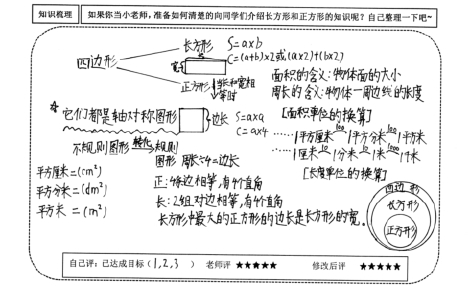 知识梳理 如果你当小老师，准备如何清楚的向同学们介绍长方形和正方形的知识呢？自己整理一下吧~
四边形
长方形 S=a×b
C=(a+b)×2或(a×2)+(b×2)
宽
长
正方形 当长和宽相等时
面积的含义:物体面的大小
周长的含义:物体一周边线的长度
☆它们都是轴对称图形
边长 S=a×a
C=a×4
[面积单位的换算]
……1平方厘米 100 1平方分米 100 1平方米
……1厘米 10 1分米 10 1米 1000 1千米
[长度单位的换算]
不规则图形 转化 规则图形
周长÷4=边长
平方厘米=(cm²)
平方分米=(dm²)
平方米=(m²)
正:4条边相等,有4个直角
长:2组对边相等,有4个直角
长方形中最大的正方形的边长是长方形的宽.
四边形
长方形
正方形
自己评：已达成目标（1,2,3） 老师评 ★★★★★ 修改后评 ★★★★★